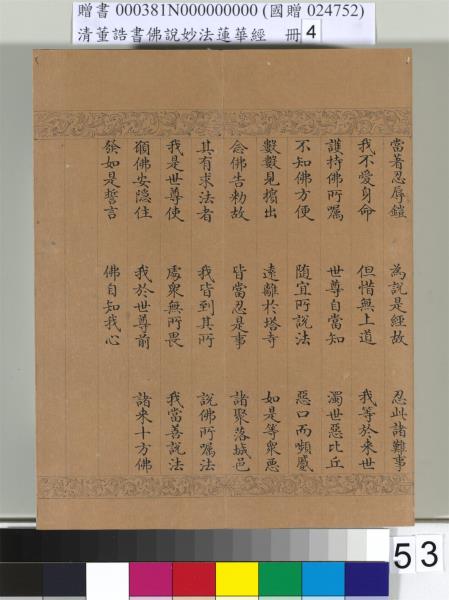 贈書 000381N000000000 (國贈 024752)
清董誥書佛說妙法蓮華經 冊 4
當著忍辱鎧 為說是經故 忍此諸難事
我不愛身命 但惜無上道 我等於來世
護持佛所囑 世尊自當知 濁世惡比丘
不知佛方便 隨宜所說法 惡口而嚬蹙
數數見擯出 遠離於塔寺 如是等衆惡
念佛告勅故 皆當忍是事 諸聚落城邑
其有求法者 我皆到其所 說佛所囑法
我是世尊使 處衆無所畏 我當善說法
願佛安隱住 我於世尊前 諸來十方佛
發如是誓言 佛自知我心
53